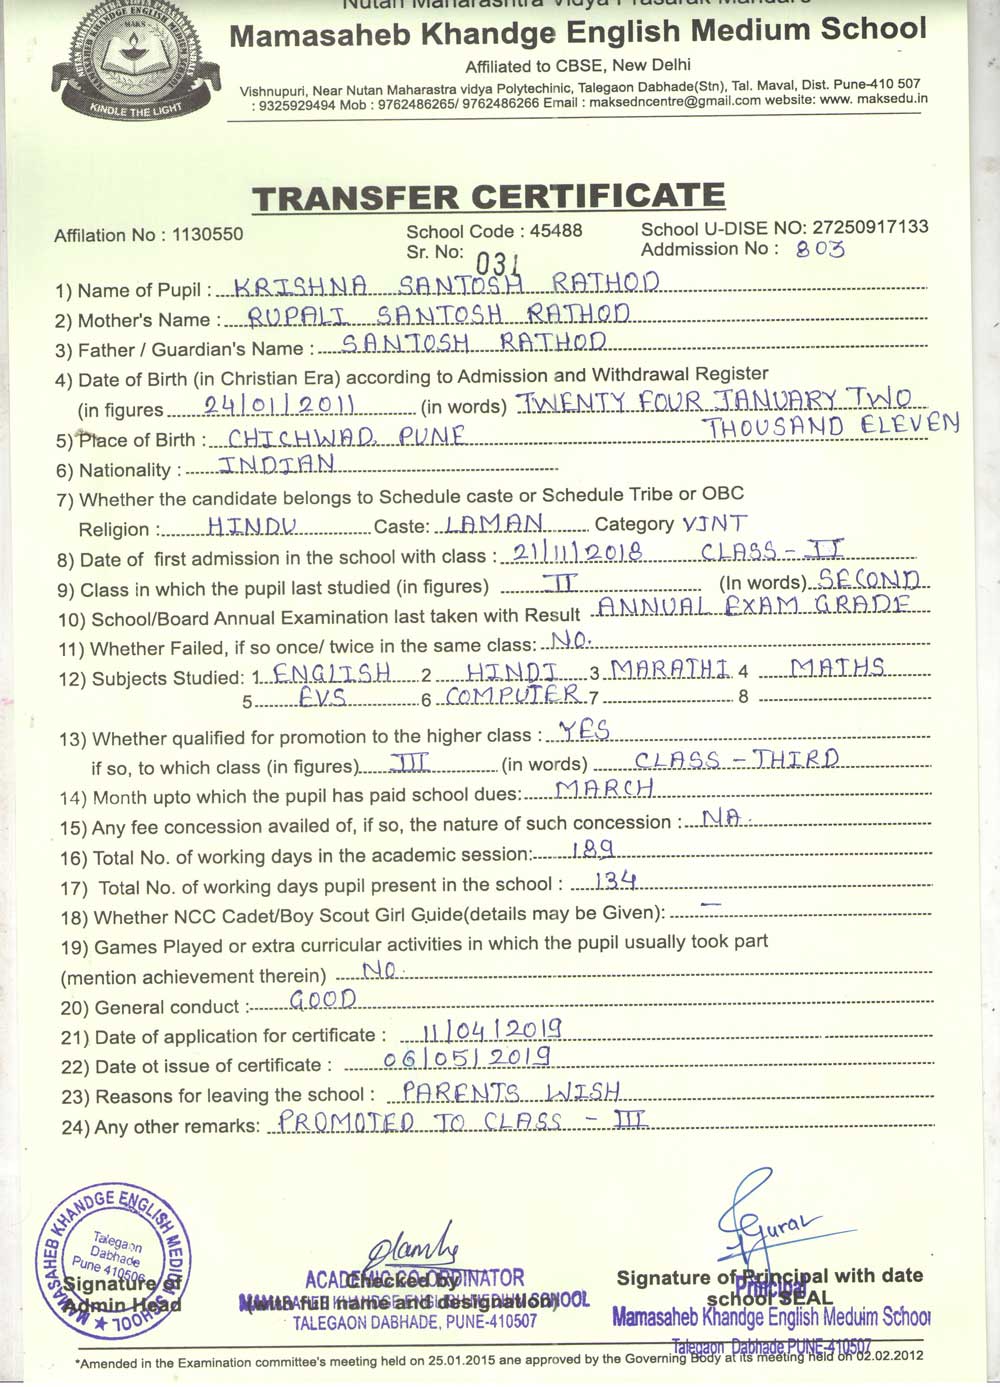 Nutan Maharashtra Vidya Prasarak Mandal's
Mamasaheb Khandge English Medium School
Affiliated to CBSE, New Delhi
Vishnupuri, Near Nutan Maharastra vidya Polytechinic, Talegaon Dabhade(Stn), Tal. Maval, Dist. Pune-410 507
: 9325929494 Mob : 9762486265/ 9762486266 Email : maksedncentre@gmail.com website: www. maksedu.in
MAKS
KINDLE THE LIGHT
TRANSFER CERTIFICATE
Affilation No : 1130550 School Code : 45488 School U-DISE NO: 27250917133
Sr. No: 031 Addmission No : 803
1) Name of Pupil : KRISHNA SANTOSH RATHOD
2) Mother's Name : RUPALI SANTOSH RATHOD
3) Father / Guardian's Name : SANTOSH RATHOD
4) Date of Birth (in Christian Era) according to Admission and Withdrawal Register
(in figures 24/01/2011 (in words) TWENTY FOUR JANUARY TWO
THOUSAND ELEVEN
5) Place of Birth : CHICHWAD, PUNE
6) Nationality : INDIAN
7) Whether the candidate belongs to Schedule caste or Schedule Tribe or OBC
Religion : HINDU Caste: LAMAN Category VJNT
8) Date of first admission in the school with class : 21/11/2018 CLASS - II
9) Class in which the pupil last studied (in figures) II (In words) SECOND
10) School/Board Annual Examination last taken with Result ANNUAL EXAM GRADE
11) Whether Failed, if so once/ twice in the same class: NO.
12) Subjects Studied: 1 ENGLISH 2 HINDI 3 MARATHI 4 MATHS
5 EVS 6 COMPUTER 7 8
13) Whether qualified for promotion to the higher class : YES
if so, to which class (in figures) III (in words) CLASS - THIRD
14) Month upto which the pupil has paid school dues: MARCH
15) Any fee concession availed of, if so, the nature of such concession : NA.
16) Total No. of working days in the academic session: 189
17) Total No. of working days pupil present in the school : 134
18) Whether NCC Cadet/Boy Scout Girl Guide(details may be Given): —
19) Games Played or extra curricular activities in which the pupil usually took part
(mention achievement therein) NO.
20) General conduct : GOOD
21) Date of application for certificate : 11/04/2019
22) Date ot issue of certificate : 06/05/2019
23) Reasons for leaving the school : PARENTS WISH
24) Any other remarks: PROMOTED TO CLASS - III
MAMASAHEB KHANDGE ENGLISH MEDIUM SCHOOL
Talegaon
Dabhade
Pune 410506
Signature of
Admin Head
ACADEMIC CO-ORDINATOR
Checked by
MAMASAHEB KHANDGE ENGLISH MEDIUM SCHOOL
(with full name and designation)
TALEGAON DABHADE, PUNE-410507
Gurav
Signature of Principal with date
school SEAL
Principal
Mamasaheb Khandge English Meduim School
Talegaon Dabhade PUNE-410507
*Amended in the Examination committee's meeting held on 25.01.2015 ane approved by the Governing Body at its meeting held on 02.02.2012